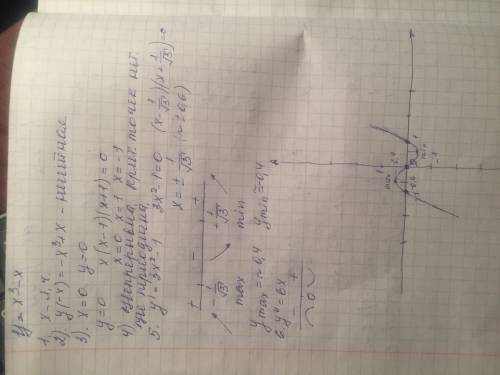 y = x³-x
1. x - л. ч.
2). y(-x) = -x³+x - нечётная
3). x=0 y=0
y=0 x(x-1)(x+1)=0
x=0 x=1 x=-1
4) непрерывна, крит. точек нет.
не периодична
5. y' = 3x²-1 3x²-1=0 (x-1/√3)(x+1/√3)=0
x = ± 1/√3 (≈ 0,6)
+ - +
-1/√3 +1/√3
max min
y max = ≈ 0,4 y min ≈ 0,4
6. y'' = 6x
- +
0
max
min